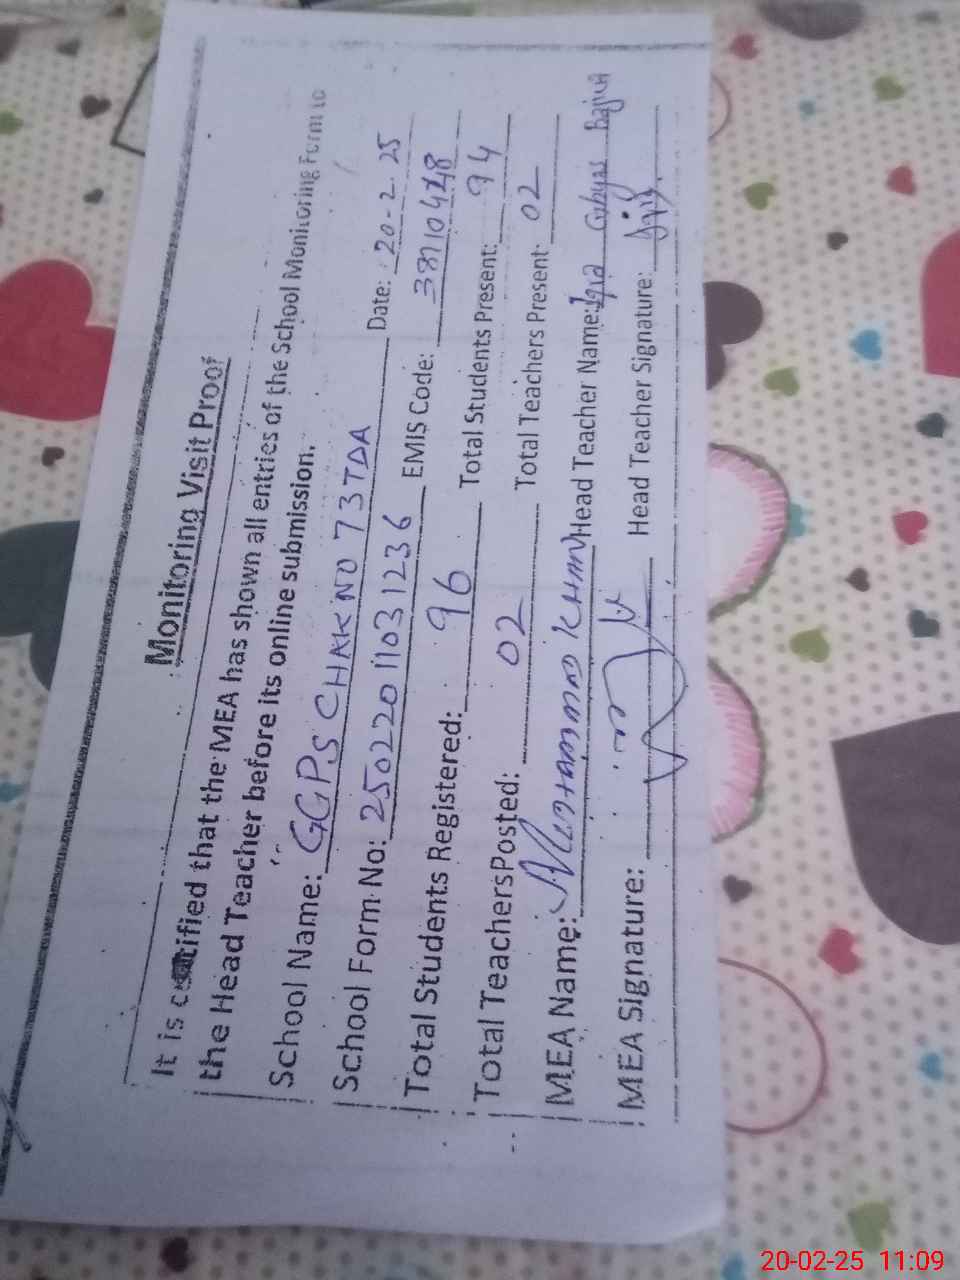 Monitoring Visit Proof
It is certified that the MEA has shown all entries of the School Monitoring Form to
the Head Teacher before its online submission.
School Name: GGPS CHAK NO 73TDA Date: 20-2-25
School Form No: 25022011031236 EMIS Code:
Total Students Registered: 96 Total Students Present: 94
Total Teachers Posted: 02 Total Teachers Present: 02
MEA Name: Muhammad KHAN Head Teacher Name:
MEA Signature: Head Teacher Signature:
20-02-25 11:09